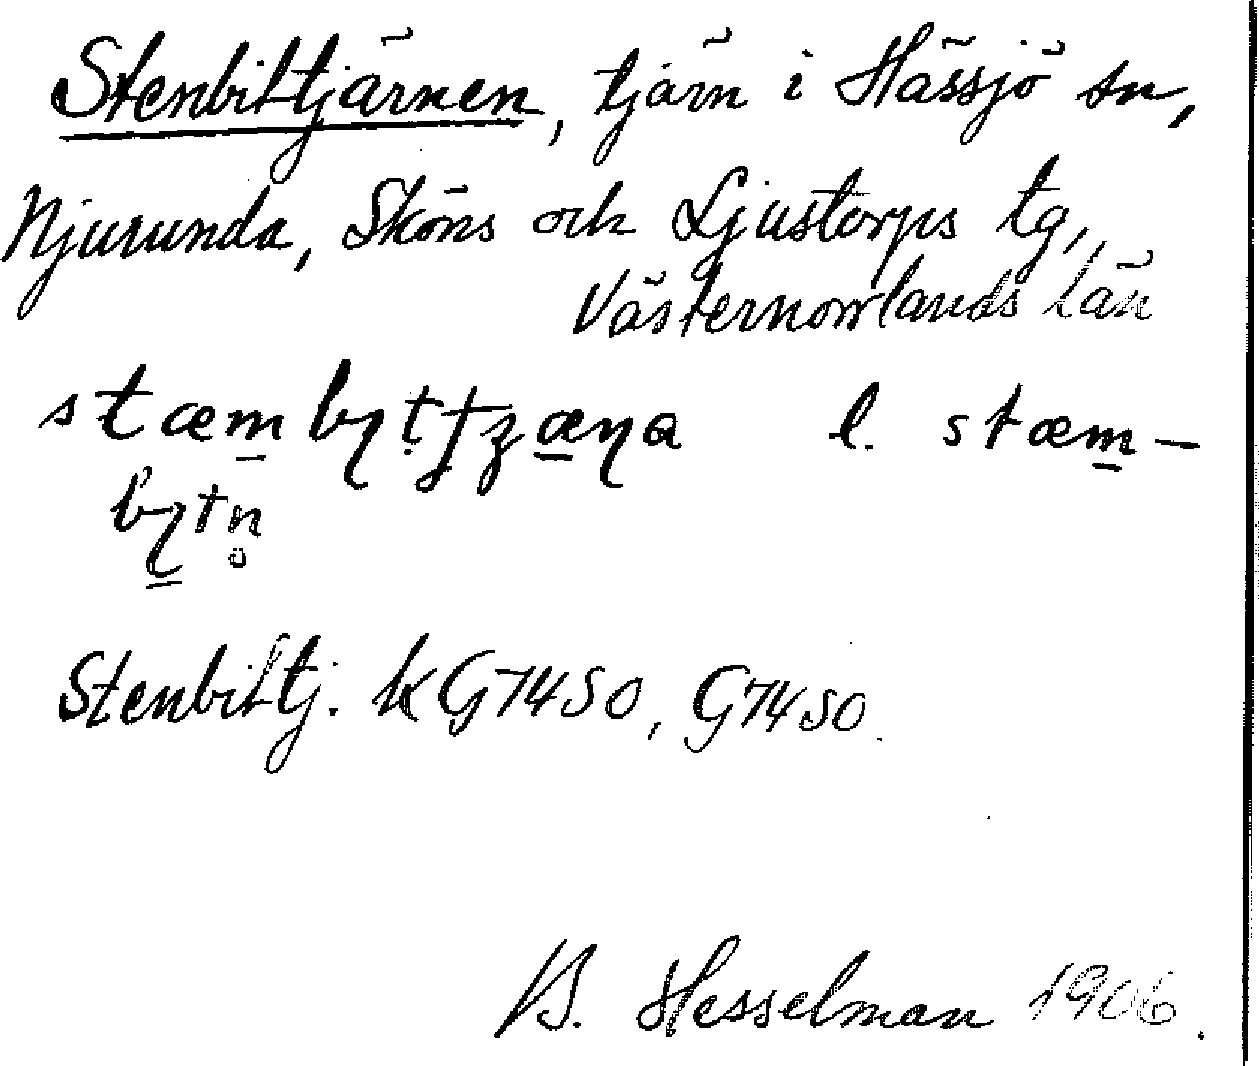 Stenbittjärnen, tjärn i Hässjö sn,
Njurunda, Sköns och Ljustorps tg,
Västernorrlands län
l.
Stenbittj. kG7450, G7450.
B. Hesselman 1906.